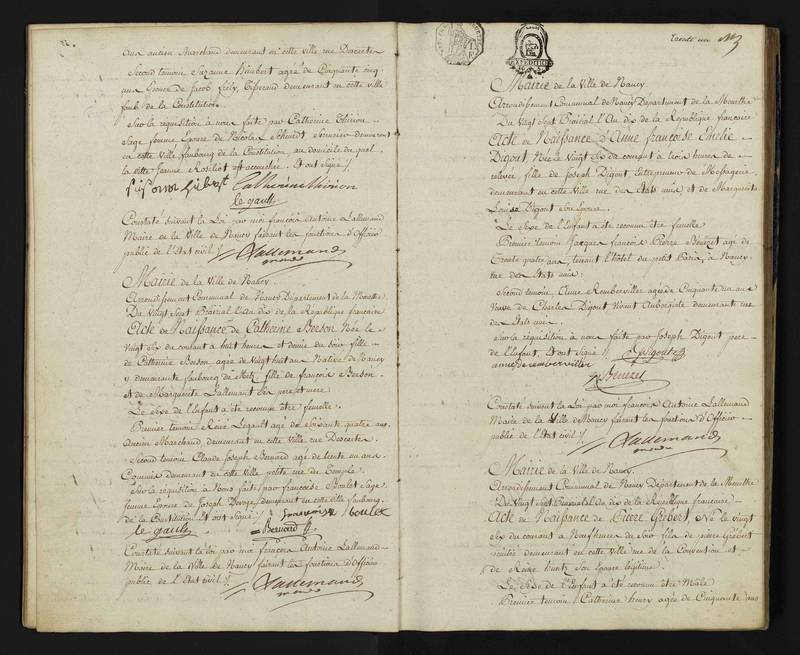 ans ancien Marchand demeurant en cette ville rue Descartes
Second temoin Suzanne Humbert agée de Cinquante cinq
ans Epouse de Jacob Tisserand demeurant en cette ville
faub. de la Constitution.
Sur la réquisition à nous faite par Catherine Thirion
Sage femme Epouse de Nicolas Schmidt demeurant
en cette Ville faubourg de la Constitution, au domicile du quel
la ditte accouchée. Et ont Signé
Catherine thirion
le gault
Constaté suivant la Loi par moi françois Antoine Lallemand
Maire de la Ville de Nancy faisant les fonctions d'Officier
public de l'Etat civil
Lallemand
maire
Mairie de la Ville de Nancy.
Arrondissement Communal de Nancy Département de la Meurthe
Du Vingt Sept Prairial l'An dix de la République françoise
Acte de Naissance de Catherine Berson Née le
Vingt Six du courant à huit heures et demie du soir fille
de Catherine Berson agée de Vingt huit ans Native de Nancy
y demeurante faubourg de Metz fille de françois Berson
et de Marguerite Lallemant Ses pere et mere
Le Sexe de l'Enfant a été reconnu être femelle.
Premier temoin Remi Legault agé de Soixante quatre ans
Ancien Marchand demeurant en cette Ville rue Descartes.
Second temoin Claude Joseph Bernard agé de trente un ans
Commis demeurant en cette Ville petite rue du Temple
Sur la requisition à Nous faite par françoise Boulet Sage
femme Epouse de Joseph demeurant en cette Ville faubourg
de la Constitution et ont signé
francoise boulet
le gault
Bernard
Constaté suivant la loi par moi françois Antoine Lallemand
Maire de la Ville de Nancy faisant les fonctions d'Officier
public de l'Etat civil
Lallemand
maire
Trente un
Mairie de la Ville de Nancy
Arrondissement Communal de Nancy Département de la Meurthe
Du Vingt Sept Prairial l'An dix de la République françoise
Acte de Naissance d'Anne françoise
Digout Née le Vingt Six du courant à trois heures de
relevée fille de Joseph Digout Entrepreneur de Messagerie
demeurant en cette Ville rue des Etats unis et de Marguerite
Louise Digout son Epouse.
Le Sexe de l'Enfant a été reconnu être femelle
Premier temoin Jacques françois Pierre Benezet agé de
Trente quatre ans, tenant l'hôtel du petit Paris, à Nancy
rue des Etats unis.
Second temoin Anne Remberviller agée de Cinquante un ans
Veuve de Charles Digout Vivant Aubergiste demeurante rue
des Etats unis.
Sur la réquisition à nous faite par Joseph Digout pere
de l'enfant, Et ont Signé
Digout
anne de remberviller
Benezet
Constaté suivant la Loi par moi françois Antoine Lallemand
Maire de la Ville de Nancy faisant les fonctions d'Officier
public de l'Etat civil
Lallemand
maire
Mairie de la Ville de Nancy.
Arrondissement Communal de Nancy Département de la Meurthe
Du Vingt Sept Prairial An dix de la République françoise
Acte de Naissance de Pierre Gebert, Né le Vingt
Six du courant à Neuf heures du Soir fils de pierre Gebert
demeurant en cette Ville rue de la Convention et
de Reine son Epouse légitime.
Le Sexe de l'Enfant a été reconnu être Mâle
Premier temoin Catherine henry agée de Cinquante deux